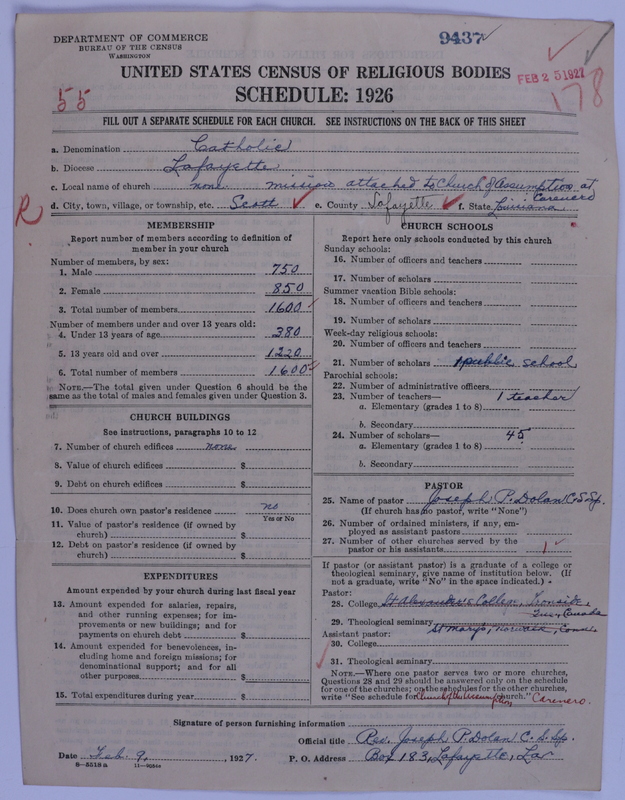 DEPARTMENT OF COMMERCE
BUREAU OF THE CENSUS
WASHINGTON
9437
FEB 25 1927
178
55
UNITED STATES CENSUS OF RELIGIOUS BODIES
SCHEDULE: 1926
FILL OUT A SEPARATE SCHEDULE FOR EACH CHURCH. SEE INSTRUCTIONS ON THE BACK OF THIS SHEET
a. Denomination Catholic
b. Diocese Lafayette
c. Local name of church none. mission attached to Church of Assumption at Carencro
d. City, town, village, or township, etc. Scott e. County Lafayette f. State Louisiana
R
MEMBERSHIP
Report number of members according to definition of
member in your church
Number of members, by sex:
1. Male 750
2. Female 850
3. Total number of members 1600
Number of members under and over 13 years old:
4. Under 13 years of age 380
5. 13 years old and over 1220
6. Total number of members 1600
NOTE.—The total given under Question 6 should be the
same as the total of males and females given under Question 3.
CHURCH BUILDINGS
See instructions, paragraphs 10 to 12
7. Number of church edifices none
8. Value of church edifices $
9. Debt on church edifices $
10. Does church own pastor's residence no
Yes or No
11. Value of pastor's residence (if owned by
church) $
12. Debt on pastor's residence (if owned by
church) $
EXPENDITURES
Amount expended by your church during last fiscal year
13. Amount expended for salaries, repairs,
and other running expenses; for im-
provements or new buildings; and for
payments on church debt $
14. Amount expended for benevolences, in-
cluding home and foreign missions; for
denominational support; and for all
other purposes $
15. Total expenditures during year $
CHURCH SCHOOLS
Report here only schools conducted by this church
Sunday schools:
16. Number of officers and teachers
17. Number of scholars
Summer vacation Bible schools:
18. Number of officers and teachers
19. Number of scholars
Week-day religious schools:
20. Number of officers and teachers
21. Number of scholars 1 public school
Parochial schools:
22. Number of administrative officers
23. Number of teachers— 1 teacher
a. Elementary (grades 1 to 8)
b. Secondary
24. Number of scholars— 45
a. Elementary (grades 1 to 8)
b. Secondary
PASTOR
25. Name of pastor Joseph P. Dolan C.S.Sp.
(If church has no pastor, write "None")
26. Number of ordained ministers, if any, em-
ployed as assistant pastors
27. Number of other churches served by the
pastor or his assistants 1
If pastor (or assistant pastor) is a graduate of a college or
theological seminary, give name of institution below. (If
not a graduate, write "No" in the space indicated.)
Pastor:
28. College St Alexander's College, Ironside,
Canada
29. Theological seminary
St Mary's, Norwalk, Conn.
Assistant pastor:
30. College
31. Theological seminary
NOTE.—Where one pastor serves two or more churches,
Questions 28 and 29 should be answered only on the schedule
for one of the churches; on the schedules for the other churches,
write "See schedule for Church of the Assumption church." Carencro.
Signature of person furnishing information
Official title Rev. Joseph P. Dolan C.S.Sp.
Date Feb. 9, 1927. P. O. Address Box 183, Lafayette, La
8—5518 a